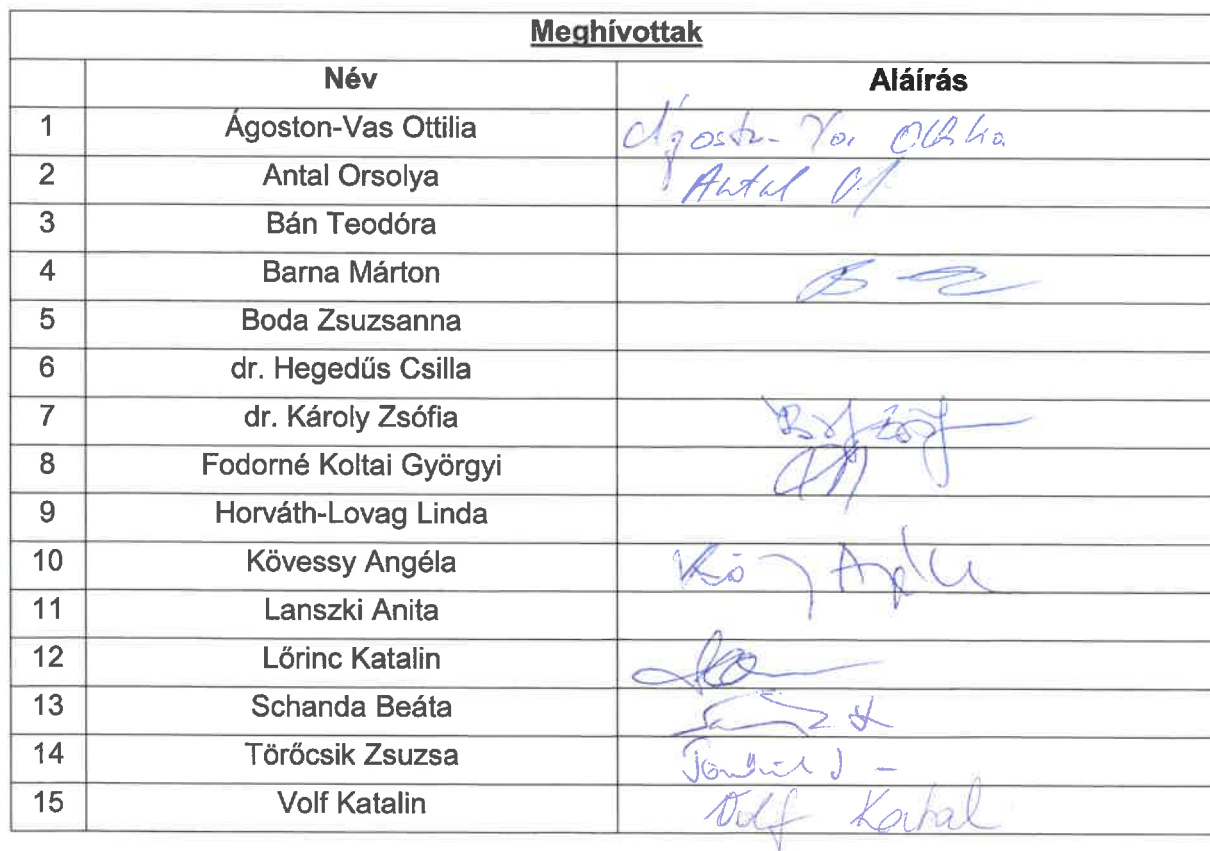 Meghívottak
Név Aláírás
1 Ágoston-Vas Ottilia
2 Antal Orsolya Antal
3 Bán Teodóra
4 Barna Márton
5 Boda Zsuzsanna
6 dr. Hegedűs Csilla
7 dr. Károly Zsófia
8 Fodorné Koltai Györgyi
9 Horváth-Lovag Linda
10 Kövessy Angéla
11 Lanszki Anita
12 Lőrinc Katalin
13 Schanda Beáta
14 Törőcsik Zsuzsa
15 Volf Katalin Volf Katal